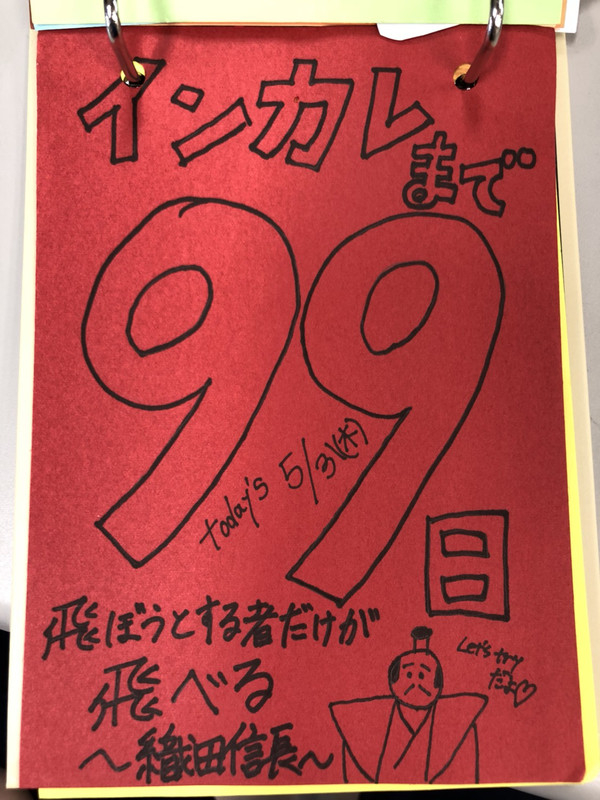 インカレ
まで
99
日
today's 5/31(木)
飛ぼうとする者だけが
飛べる
〜織田信長〜
Let's try
だよ♡